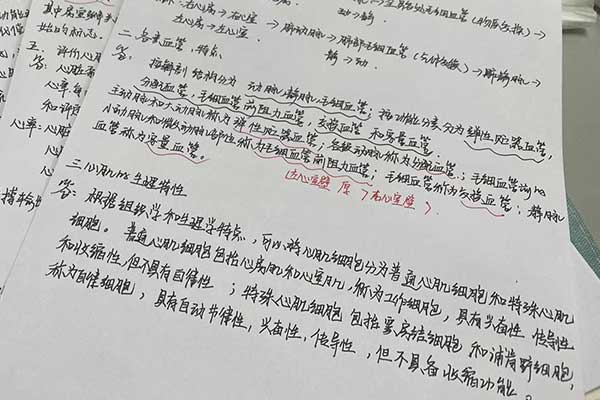 右心房→右心室→肺动脉→肺部毛细血管(气体交换)→肺静脉→
左心房→左心室
肺→动.
二.各类血管,特点
答:按解剖结构分为动脉,静脉,毛细血管;按功能分类分为弹性贮器血管,
分配血管,毛细血管前阻力血管,交换血管和容量血管。
主动脉和大动脉称为弹性贮器血管;各级动脉称为分配血管;
小动脉和微动脉称为毛细血管前阻力血管;毛细血管称为交换血管;静脉
血管称为容量血管。
左心室壁厚>右心室壁
三.心肌的生理特性
答:根据组织学和生理学特点,可以将心肌细胞分为普通心肌细胞和特殊心肌
细胞。普通心肌细胞包括心房肌和心室肌,称为工作细胞,具有兴奋性 传导性
和收缩性,但不具有自律性;特殊心肌细胞包括窦房结细胞和浦肯野细胞,
称为自律细胞,具有自动节律性,兴奋性,传导性,但不具备收缩功能。
其中
始的标志.
五.评价心
答:心脏
和评
心率:心